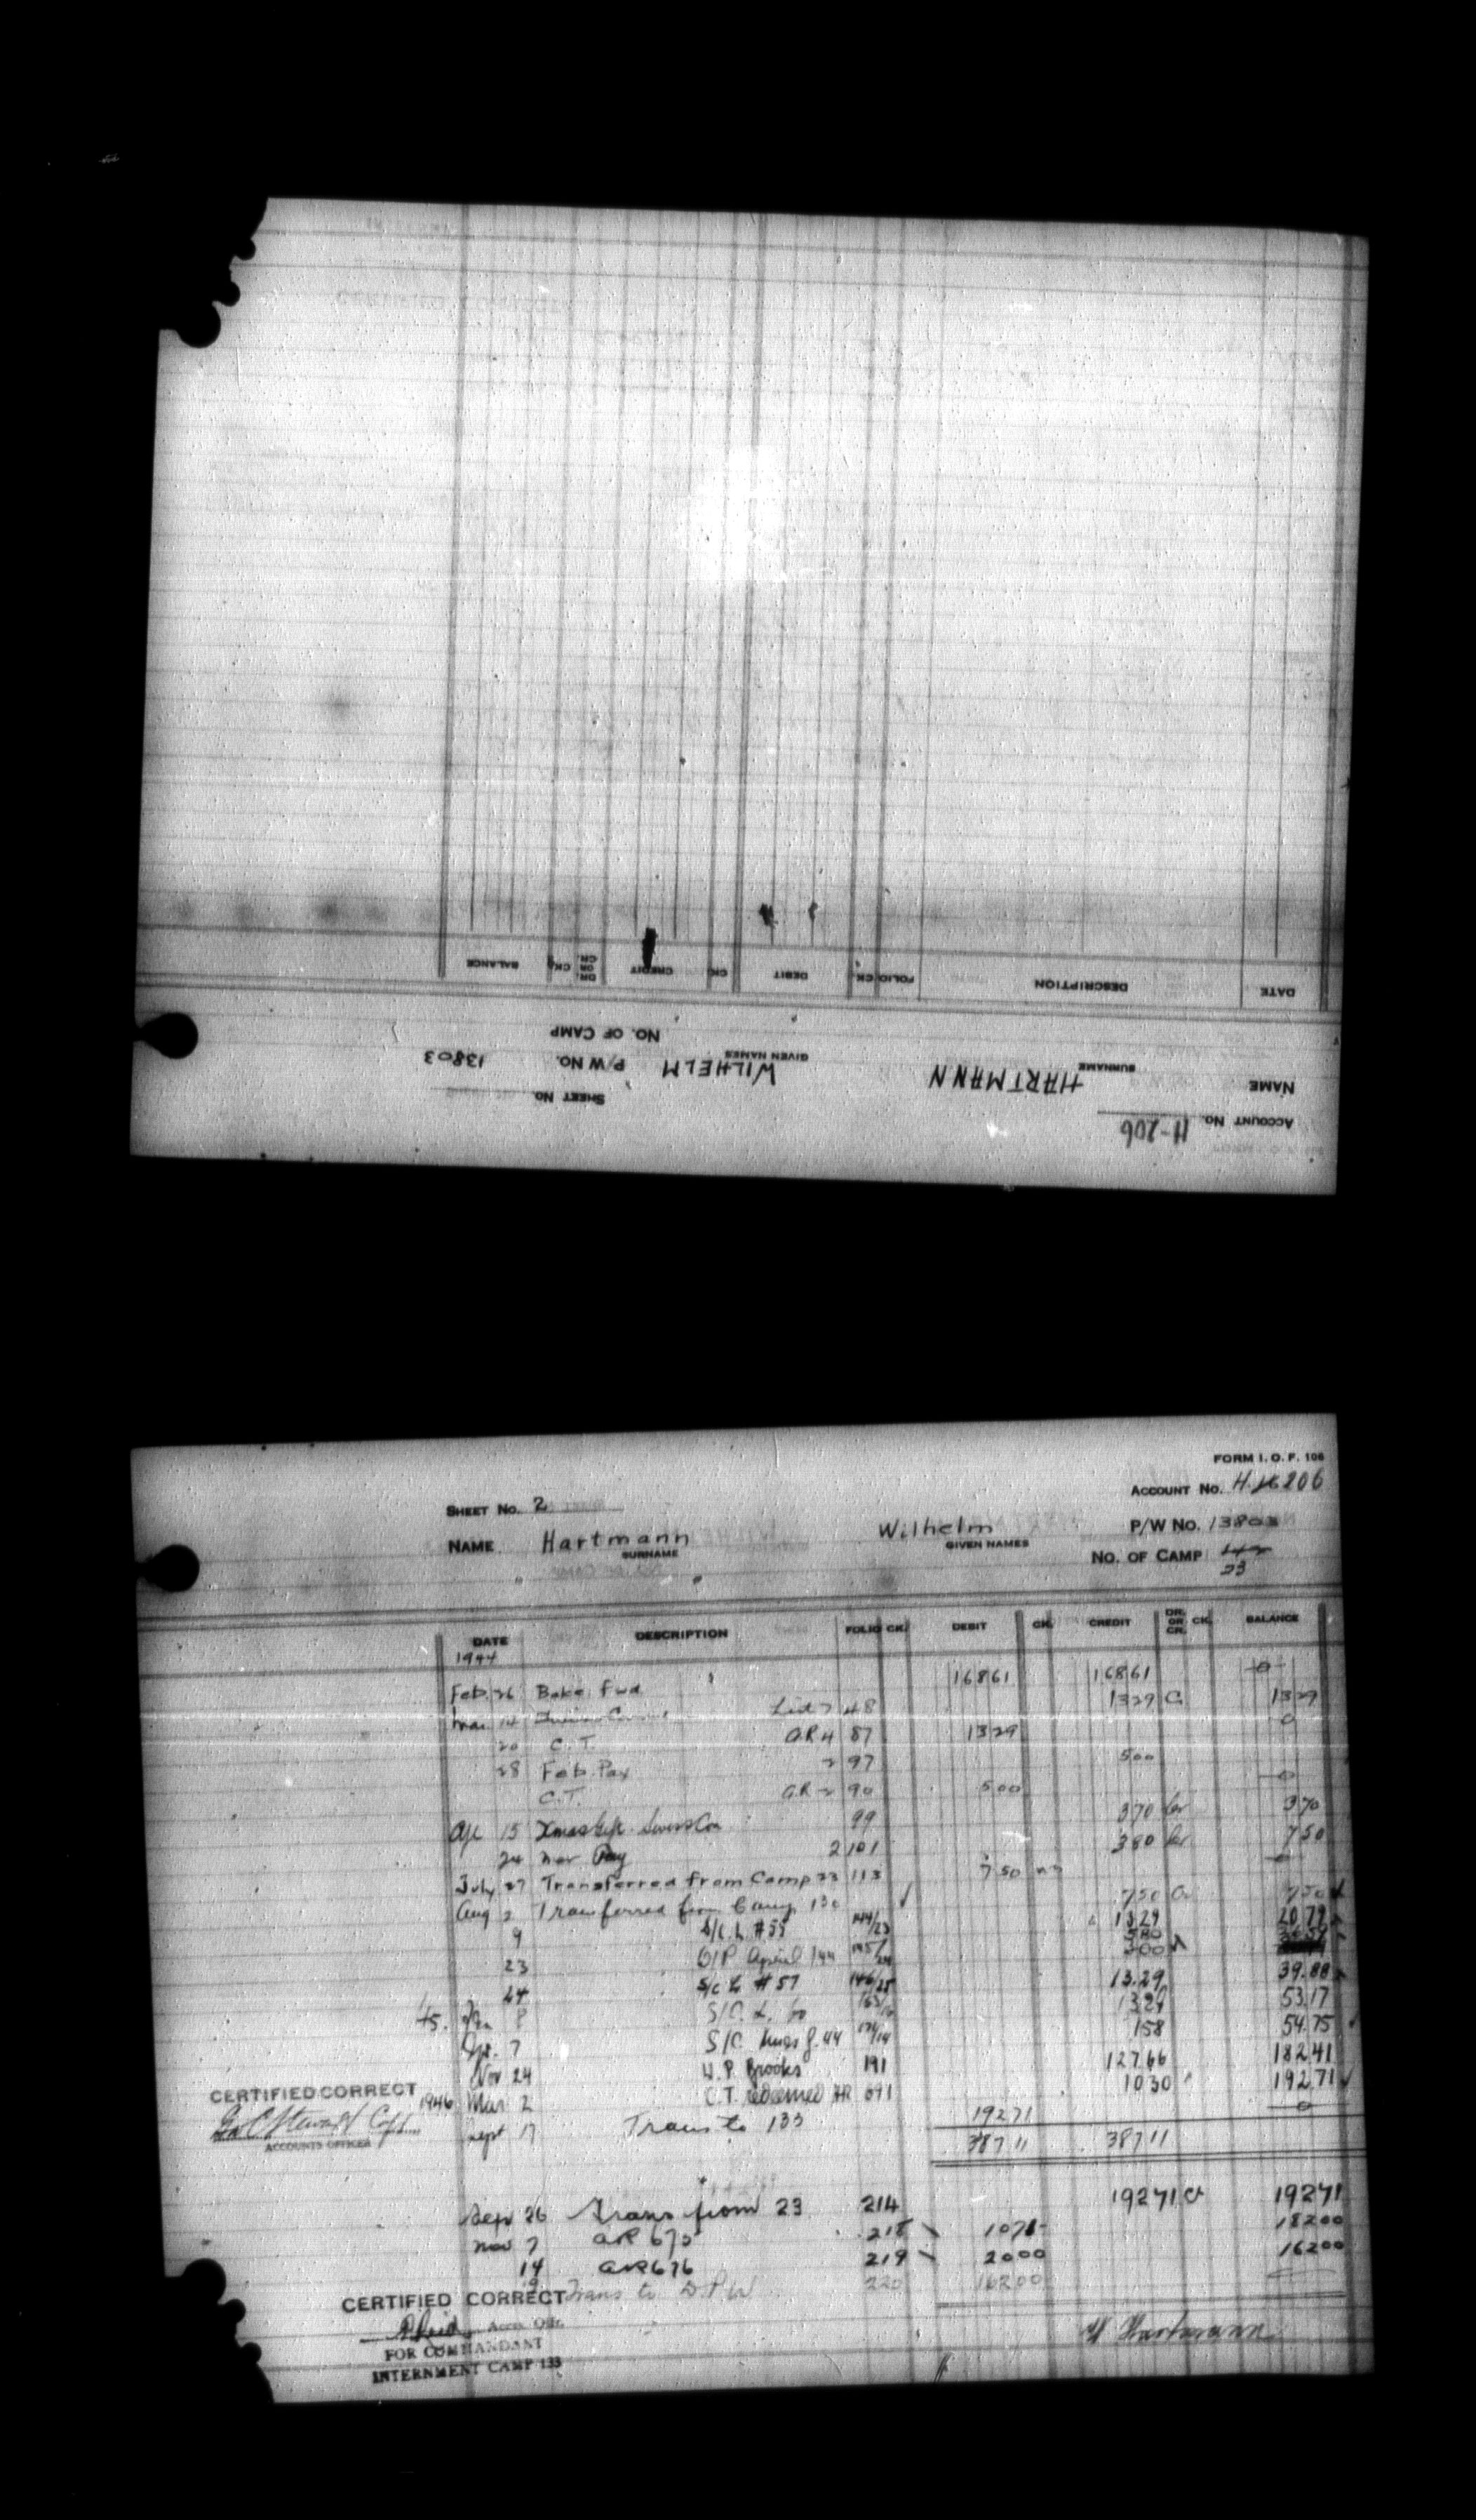 BALANCE CK. DR. OR CR. CREDIT CK. DEBIT CK. FOLIO DESCRIPTION DATE
NO. OF CAMP
13803 P/W NO. WILHELM GIVEN NAMES HARTMANN SURNAME NAME
SHEET NO.
H-206 ACCOUNT NO.
FORM I. O. F. 106
SHEET NO. 2 ACCOUNT NO. H. 206
NAME Hartmann Wilhelm P/W NO. 13803
SURNAME GIVEN NAMES NO. OF CAMP 23
DATE DESCRIPTION FOLIO CK. DEBIT CK. CREDIT DR. OR CR. CK. BALANCE
1944
Feb. 26 Balce. Fwd 168 61 168 61 0
Mar 14 48 13 29 Cr 13 29
20 C.T. A.R 4 87 13 29 0
28 Feb. Pay 2 97 5 00
C.T. A.R 2 90 5 00 0
Ap 15 Xmas Gift Swiss Con 99 3 70 Cr 3 70
24 Mar Pay 2 101 3 80 Cr 7 50
July 27 Transferred from Camp 23 113 7 50
Aug 2 Transferred from Camp 130 7 50 Cr 7 50
9 S/C L #55 144/23 13 29 20 79
23 O/P April /44
24 S/C L #57 13.29 39.88
45. 8 S/C. L. 60 13 29 53.17
7 S/C Xmas g. 44 1 58 54.75
Nov 24 W. P. Brooks 191 127 66 182 41
1946 Mar 2 C.T. redeemed AR 691 10 30 192 71
Sept 17 Trans to 133 192 71 0
387 11 387 11
CERTIFIED CORRECT
Stewart Capt.
ACCOUNTS OFFICER
Sep 26 Trans from 23 214 192 71 Cr 192 71
Nov 7 AR 675 218 10 71 182 00
14 AR 676 219 20 00 162 00
Trans to D.P.W 220 162 00
CERTIFIED CORRECT
Accts. Offr.
FOR COMMANDANT
INTERNMENT CAMP 133
W Hartmann